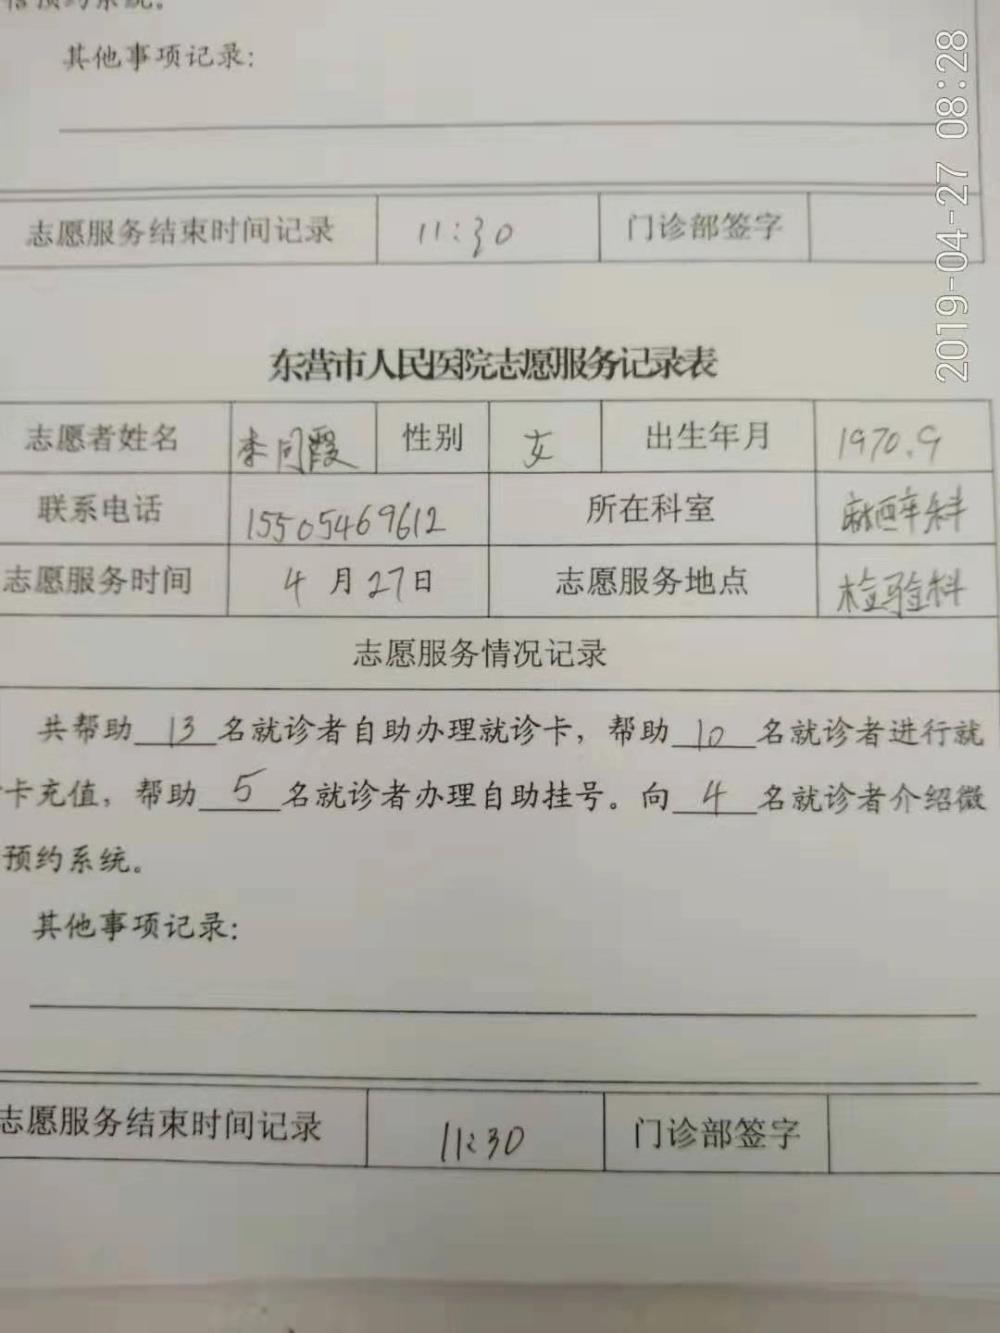 其他事项记录:
志愿服务结束时间记录 11:30 门诊部签字
2019-04-27 08:28
东营市人民医院志愿服务记录表
志愿者姓名 李同霞 性别 女 出生年月 1970.9
联系电话 15505469612 所在科室 麻醉科
志愿服务时间 4月27日 志愿服务地点 检验科
志愿服务情况记录
共帮助13名就诊者自助办理就诊卡，帮助10名就诊者进行就
卡充值，帮助5名就诊者办理自助挂号。向4名就诊者介绍微
预约系统。
其他事项记录:
志愿服务结束时间记录 11:30 门诊部签字